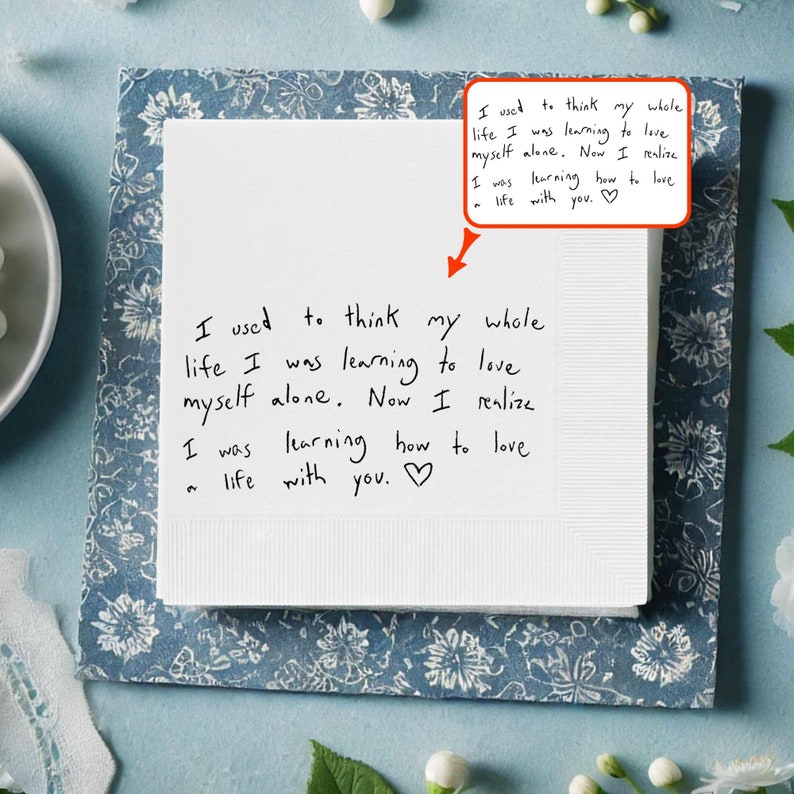 I used to think my whole
life I was learning to love
myself alone. Now I realize
I was learning how to love
a life with you. ♡
I used to think my whole
life I was learning to love
myself alone. Now I realize
I was learning how to love
a life with you. ♡